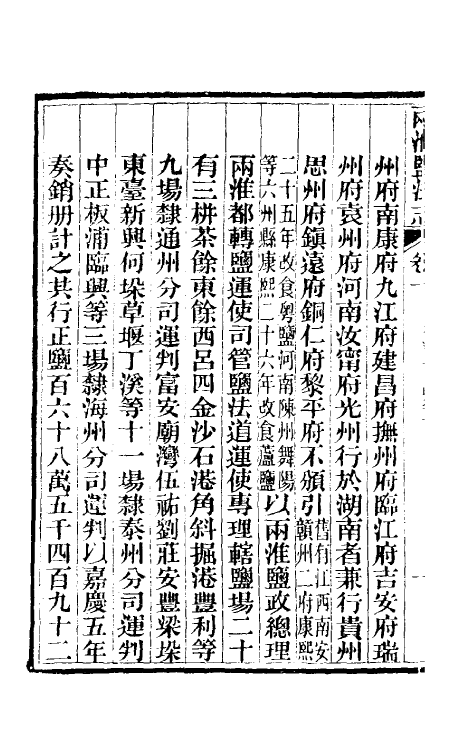 兩淮鹽法志
州府南康府九江府建昌府撫州府臨江府吉安府瑞
州府袁州府河南汝甯府光州行於湖南者兼行貴州
思州府鎮遠府銅仁府黎平府不頒引舊有江西南安贛州二府康熙
二十五年改食粵鹽河南陳州舞陽等六州縣康熙二十六年改食蘆鹽以兩淮鹽政總理
兩淮都轉鹽運使司管鹽法道運使專理轄鹽場二十
有三栟茶餘東餘西呂四金沙石港角斜掘港豐利等
九場隸通州分司運判富安廟灣伍祐劉莊安豐梁垛
東臺新興何垛草堰丁溪等十一場隸泰州分司運判
中正板浦臨興等三場隸海州分司運判以嘉慶五年
奏銷册計之其行正鹽百六十八萬五千四百九十二